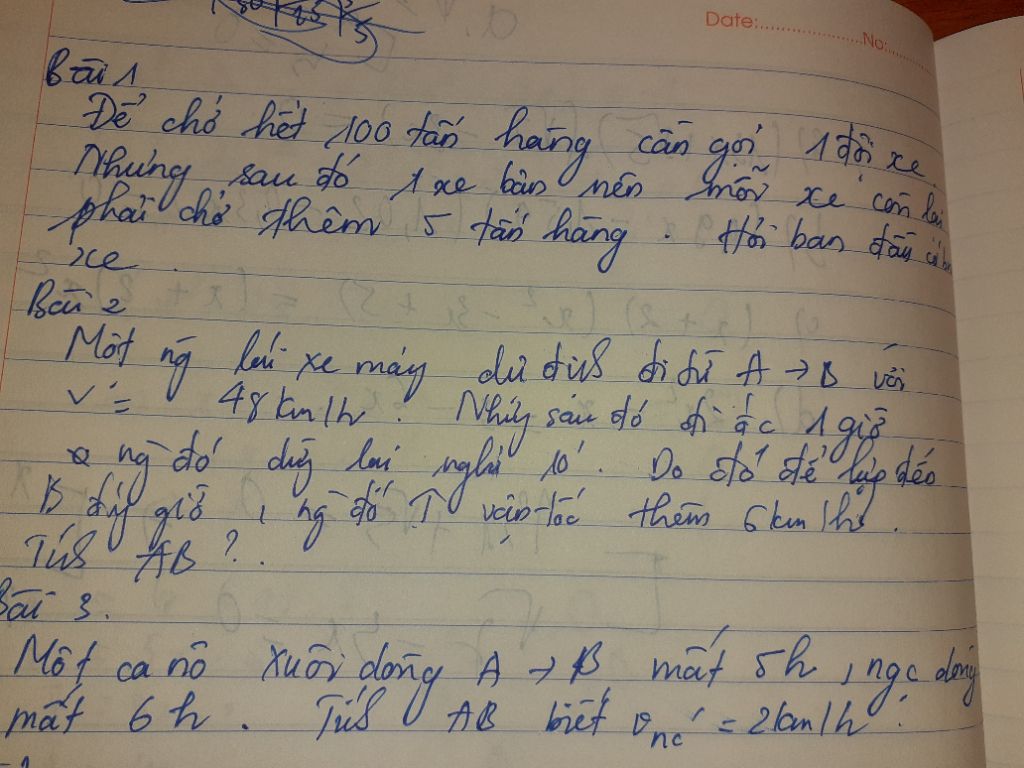 Date: No:
Bài 1
Để chở hết 100 tấn hàng cần gọi 1 đội xe.
Nhưng sau đó 1 xe bận nên mỗi xe còn lại
phải chở thêm 5 tấn hàng. Hỏi ban đầu có
xe.
Bài 2
Một ng lái xe máy dự định đi từ A → B với
v = 48km/h. Nhưng sau đó đi đc 1 giờ
ng đó dừng lại nghỉ 10'. Do đó để kịp đến
B đúng giờ, ng đó ↑ vận tốc thêm 6km/h.
Tính AB?
Bài 3.
Một ca nô xuôi dòng A → B mất 5h, ngc dòng
mất 6h. Tính AB biết vnc = 2km/h.